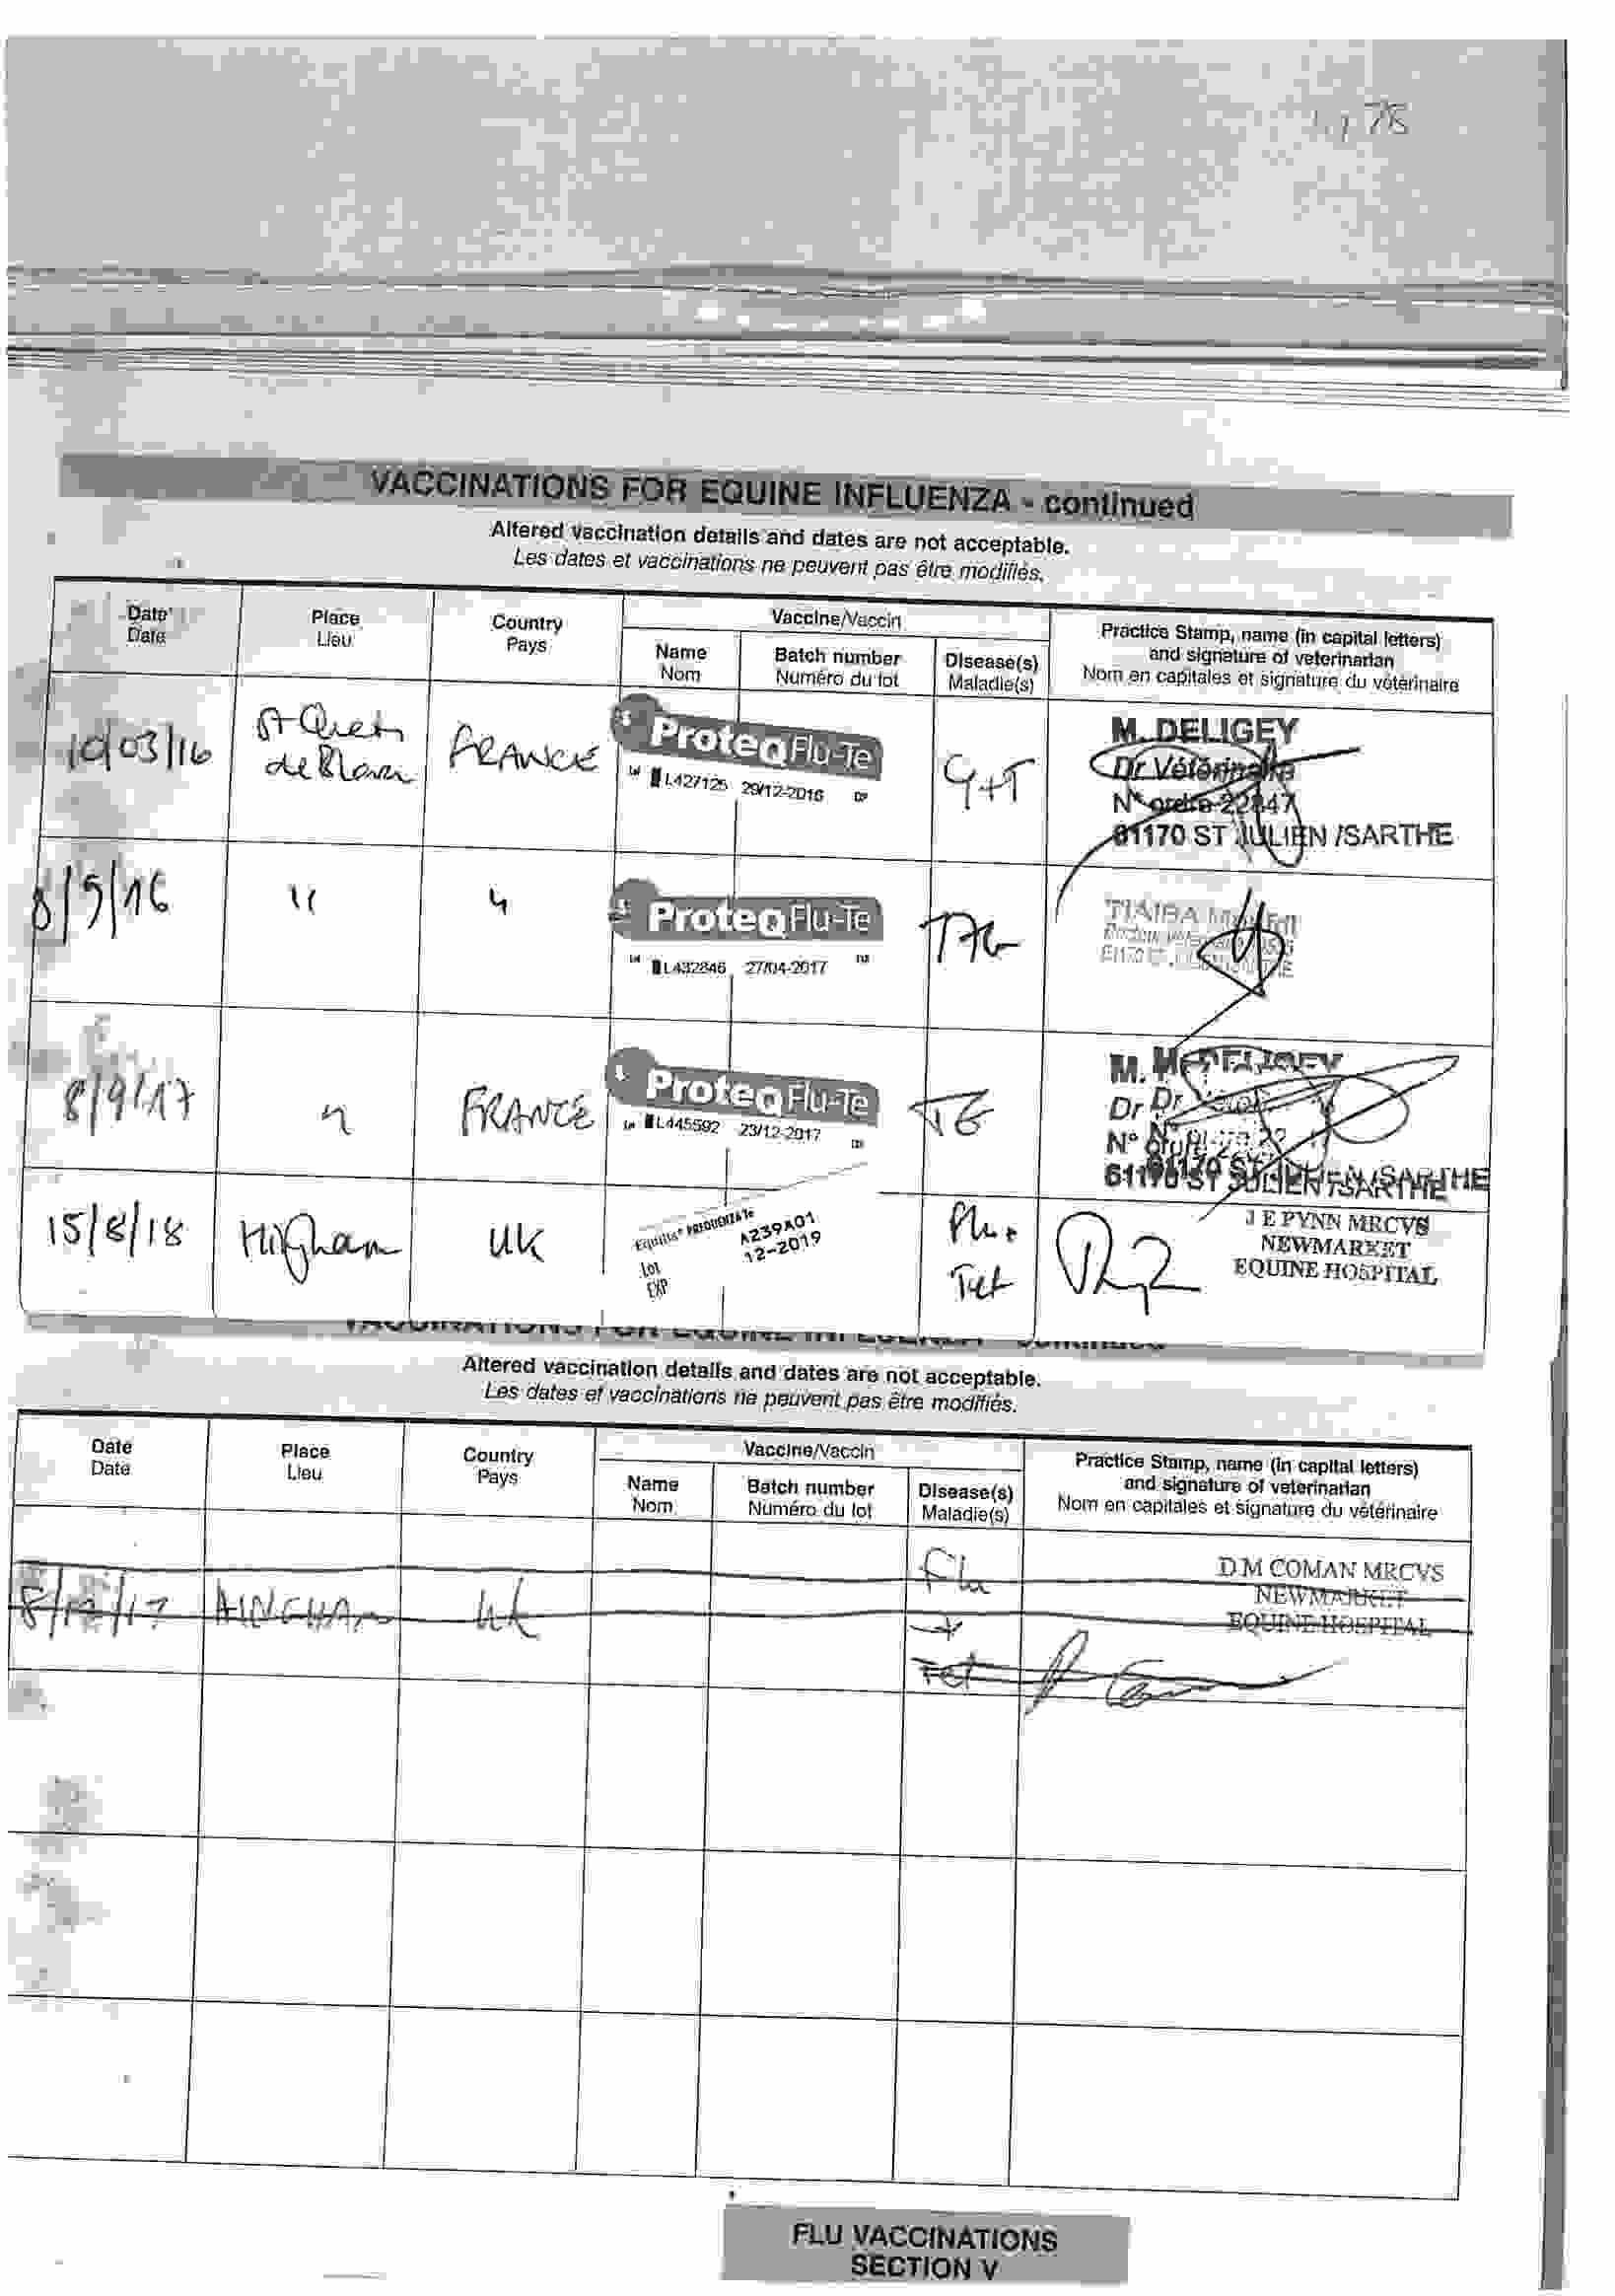 78
VACCINATIONS FOR EQUINE INFLUENZA - continued
Altered vaccination details and dates are not acceptable.
Les dates et vaccinations ne peuvent pas être modifiés.
Date Place Country Vaccine/Vaccin Practice Stamp, name (in capital letters)
Date Lieu Pays Name Batch number Disease(s) and signature of veterinarian
Nom Numéro du lot Maladie(s) Nom en capitales et signature du vétérinaire
10/03/16 FRANCE ProteqFlu-Te G+T M. DELIGEY
Lot L427125 29/12-2016 EXP Dr Vétérinaire
N° ordre 22847
61170 ST JULIEN /SARTHE
8/9/16 " " ProteqFlu-Te
Lot L432846 27/04-2017 EXP
8/9/17 " FRANCE ProteqFlu-Te TG M. DELIGEY
Lot L445592 23/12-2017 EXP Dr
N°
61170 ST JULIEN /SARTHE
15/8/18 Higham UK Equilis PREQUENZA Te Flu + J E PYNN MRCVS
Lot A239A01 Tet NEWMARKET
EXP 12-2019 EQUINE HOSPITAL
VACCINATIONS FOR EQUINE INFLUENZA - continued
Altered vaccination details and dates are not acceptable.
Les dates et vaccinations ne peuvent pas être modifiés.
Date Place Country Vaccine/Vaccin Practice Stamp, name (in capital letters)
Date Lieu Pays Name Batch number Disease(s) and signature of veterinarian
Nom Numéro du lot Maladie(s) Nom en capitales et signature du vétérinaire
8/12/17 UK Flu D M COMAN MRCVS
+ NEWMARKET
Tet EQUINE HOSPITAL
FLU VACCINATIONS
SECTION V